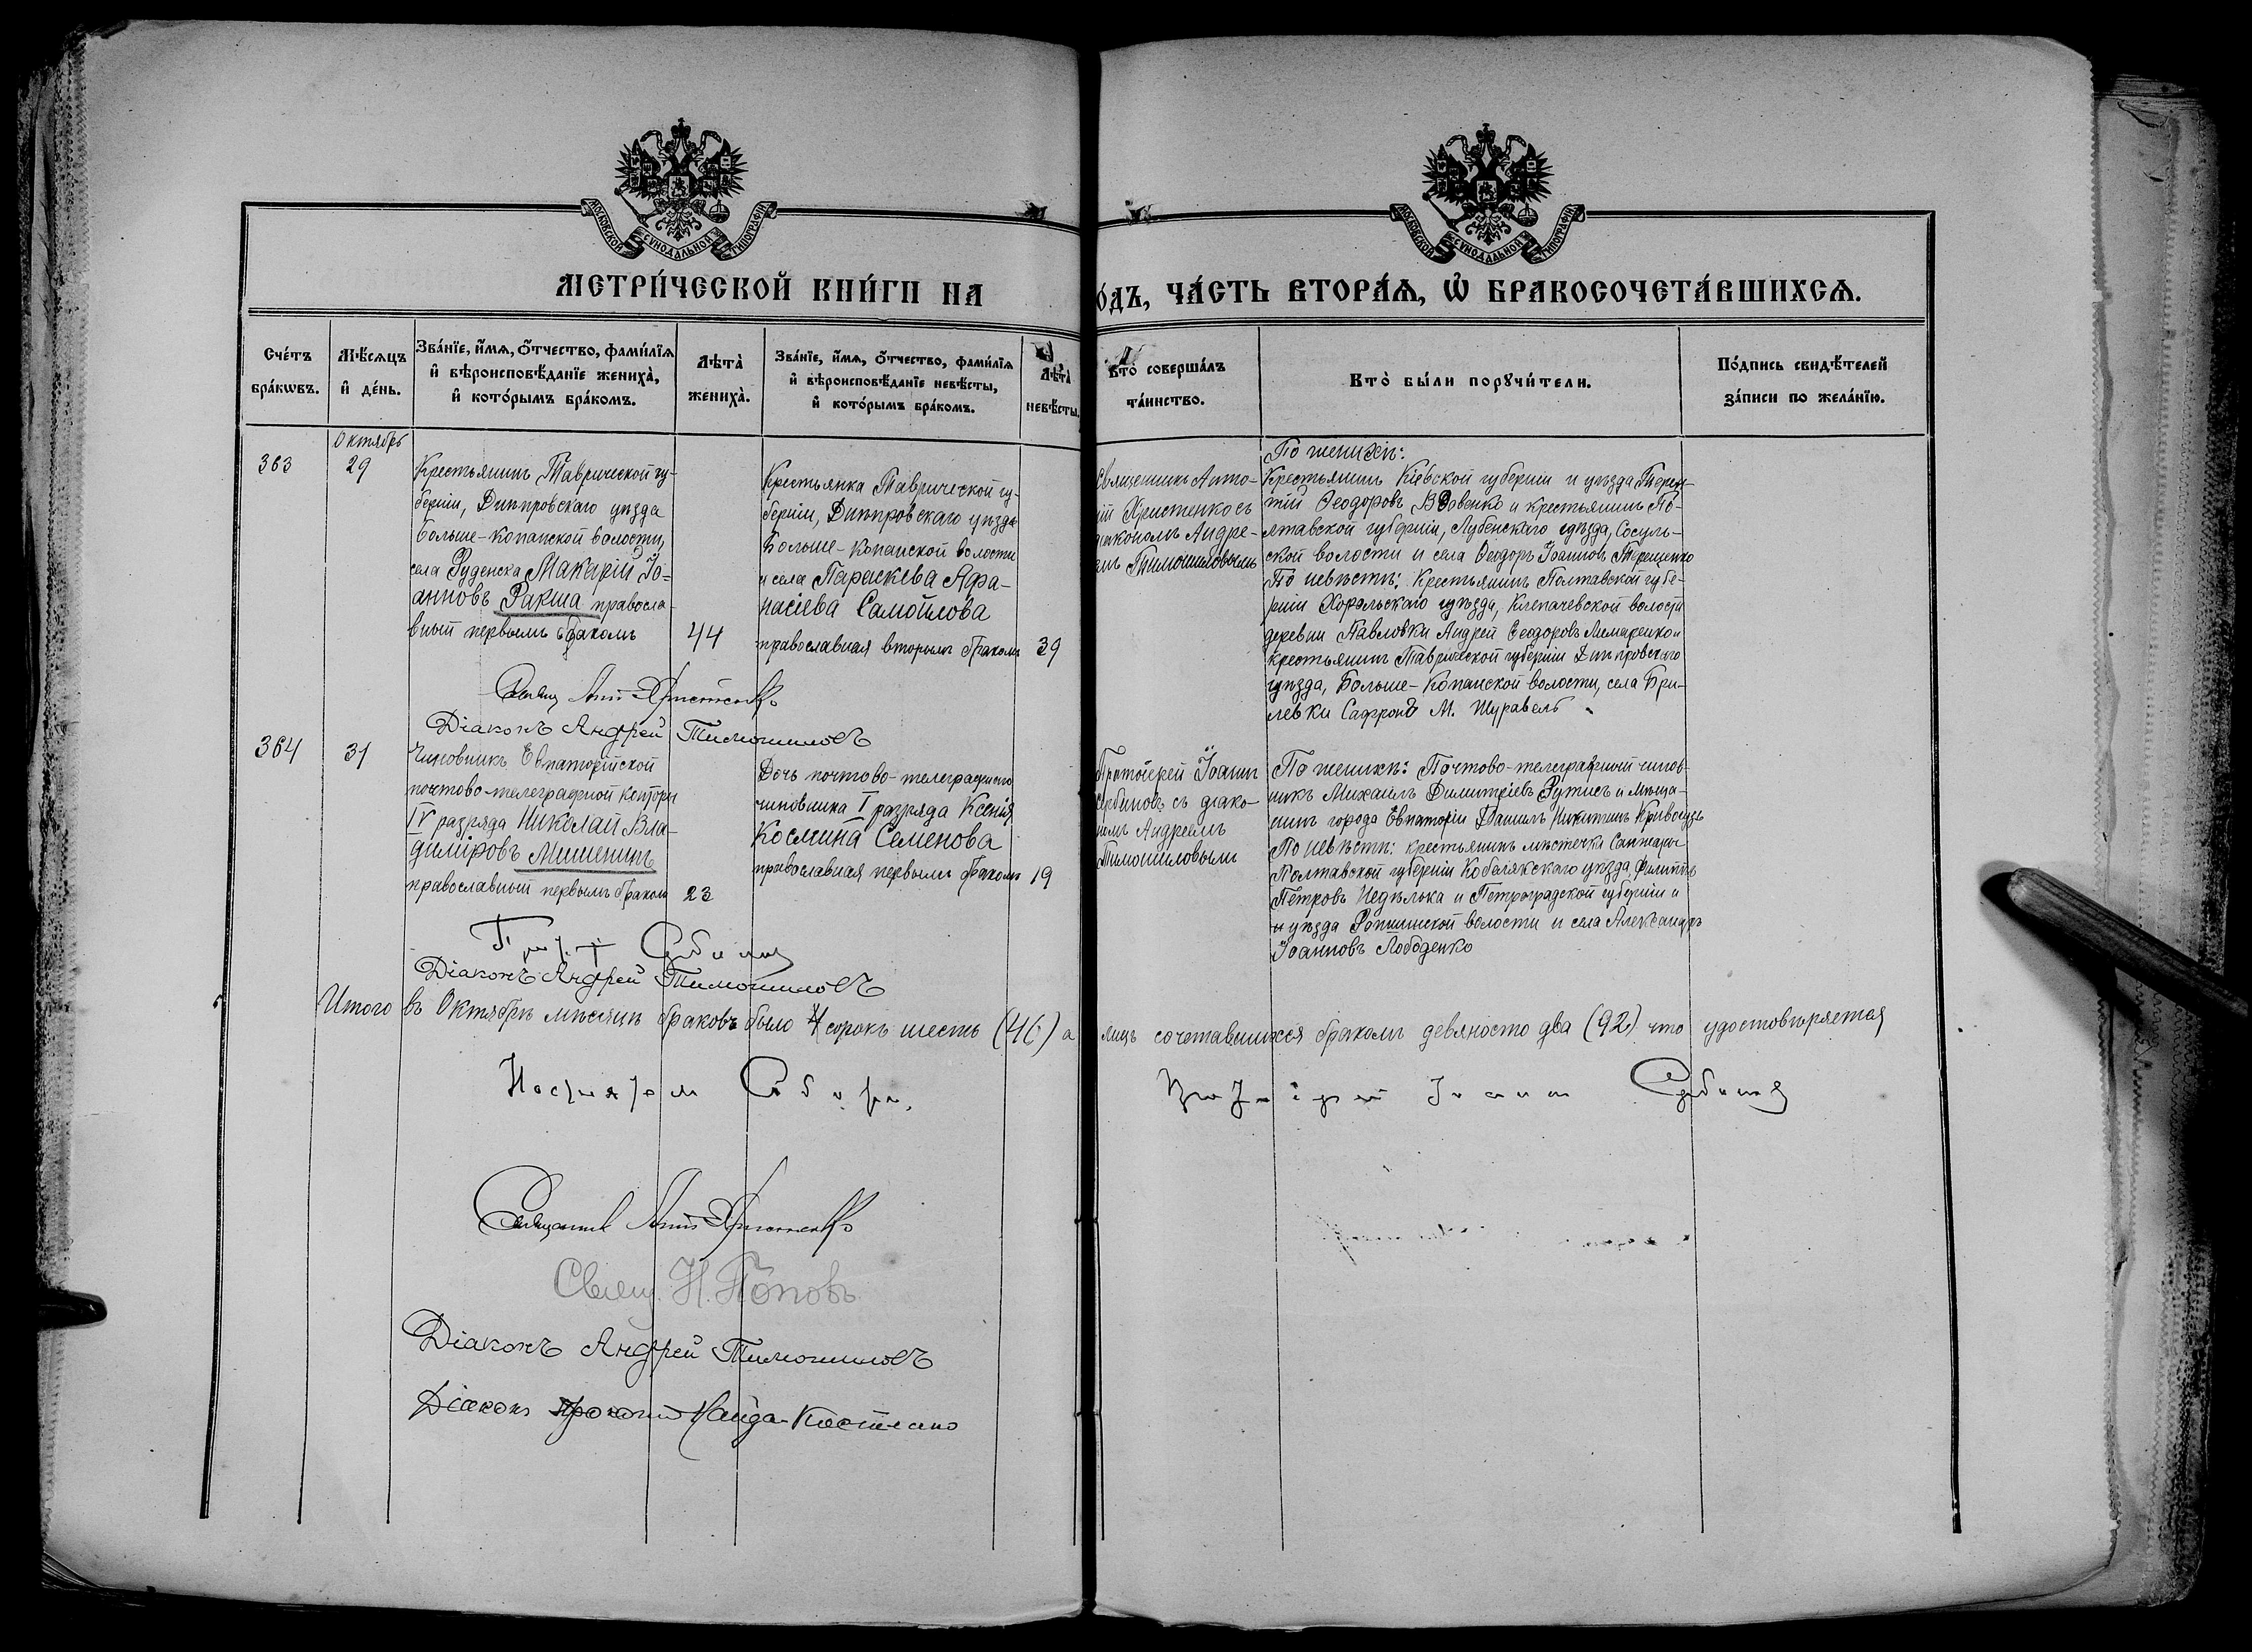 МОСКОВСКОЙ СѴНОДАЛЬНОЙ ТИПОГРАФІИ
МОСКОВСКОЙ СѴНОДАЛЬНОЙ ТИПОГРАФІИ
МЕТРИ́ЧЕСКОЙ КНИ́ГИ НА
О́ДЪ, ЧА́СТЬ ВТОРА́Ѧ, Ѡ҆ БРАКОСОЧЕТА́ВШИХСѦ.
Сче́тъ бра́кѡвъ.
Мѣ́сѧцъ и҆ де́нь.
Зва́нїе, и҆́мѧ, ѻ҆́тчество, фами́лїѧ
и҆ вѣроисповѣ́данїе жениха̀,
и҆ кото́рымъ бра́комъ.
Лѣта̀ жениха̀.
Зва́нїе, и҆́мѧ, ѻ҆́тчество, фами́лїѧ
и҆ вѣроисповѣ́данїе невѣ́сты,
и҆ кото́рымъ бра́комъ.
Лѣта̀ невѣ́сты.
Кто̀ соверша́лъ
та́инство.
Кто̀ бы́ли порꙋчи́тели.
По́дпись свидѣ́телей
за́писи по жела́нїю.
363
Октябрь
29
Крестьянинъ Таврической гу-
берніи, Днѣпровскаго уѣзда
Больше-Копанской волости,
села Руденска Макарій Іо-
анновъ Ракша правосла-
вный первымъ бракомъ
44
Крестьянка Таврической гу-
берніи, Днѣпровскаго уѣзда
Больше-Копанской волости
и села Параскева Афа-
насіева Самойлова
православная вторымъ бракомъ
39
Священникъ Анто-
ній Христенко съ
діакономъ Андре-
емъ Тимошиловымъ
По женихѣ:
Крестьянинъ Кіевской губерніи и уѣзда Терен-
тій Ѳеодоровъ Вдовенко и крестьянинъ По-
лтавской губерніи, Лубенскаго уѣзда, Сосуль-
ской волости и села Ѳеодоръ Іоанновъ Терещенко
По невѣстѣ: Крестьянинъ Полтавской губе-
рніи Хорольскаго уѣзда, Клепачевской волости
деревни Павловки Андрей Ѳеодоровъ Лимаренко и
крестьянинъ Таврической губерніи Днѣпровскаго
уѣзда, Больше-Копанской волости, села Бри-
левки Сафронъ М. Журавель
Свящ Ант Христенко
Діаконъ Андрей Тимошиловъ
364
31
Чиновникъ Евпаторійской
почтово-телеграфной конторы
IV разряда Николай Вла-
диміровъ Мишенинъ
православный первымъ бракомъ
23
Дочь почтово-телеграфнаго
чиновника I разряда Ксенія
Космина Семенова
православная первымъ бракомъ
19
Протоіерей Іоаннъ
Сербиновъ съ діако-
номъ Андреемъ
Тимошиловымъ
По женихѣ: Почтово-телеграфный чинов-
никъ Михаилъ Димитріевъ Рутисъ и мѣща-
нинъ города Евпаторіи Даніилъ Никитинъ Кривошя
По невѣстѣ: крестьянинъ мѣстечка Санжары
Полтавской губерніи Кобелякскаго уѣзда Филиппъ
Петровъ Недѣлька и Петроградской губерніи и
и уѣзда Ропшинской волости и села Александръ
Іоанновъ Лободенко
Прот Сербинов
Діаконъ Андрей Тимошиловъ
Итого въ Октябрѣ мѣсяцѣ браковъ было сорокъ шесть (46) а лицъ сочетавшихся бракомъ девяносто два (92) что удостовѣряется
Настоятель Собора, Протоіерей Іоанн Сербинов
Священник Ант Христенко
Свящ. Н. Поповъ
Діаконъ Андрей Тимошиловъ
Діаконъ Прокопій Гайда-